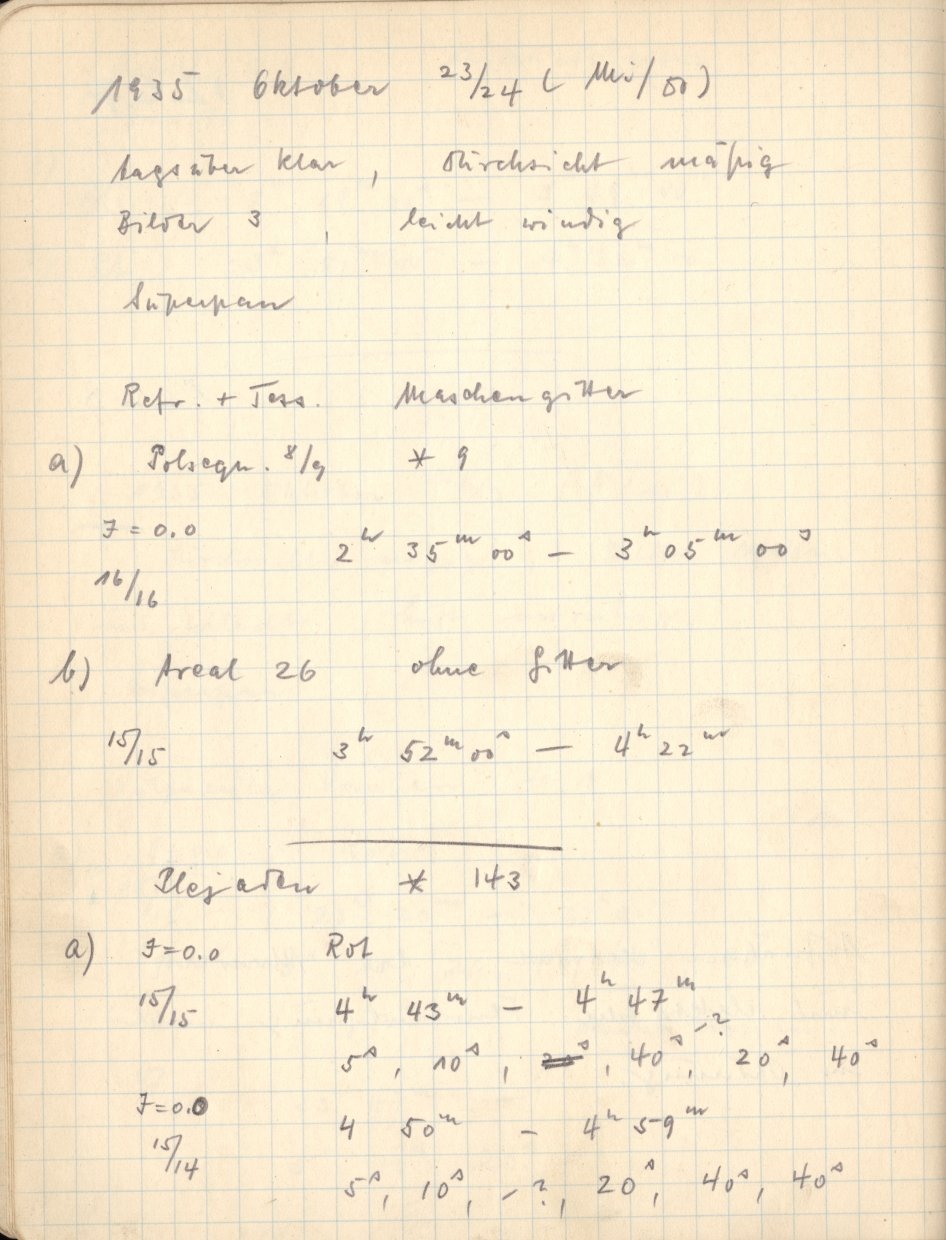 1935 Oktober 23/24 (Mi/Do)
tagsüber klar, Durchsicht mäßig
Bilder 3, leicht windig
Superpan
Refr. + Tess. Maschengitter
a) Polsequ. 8/9 * 9
F = 0.0 2h 35m 00s — 3h 05m 00s
16/16
b) Areal 26 ohne Gitter
15/15 3h 52m 00s — 4h 22m
Plejaden * 143
a) F = 0.0 Rot
15/15 4h 43m — 4h 47m
5s, 10s, 20s, 40s, -? 20s, 40s
F = 0.0 4 50m — 4h 59m
15/14
5s, 10s, -?, 20s, 40s, 40s